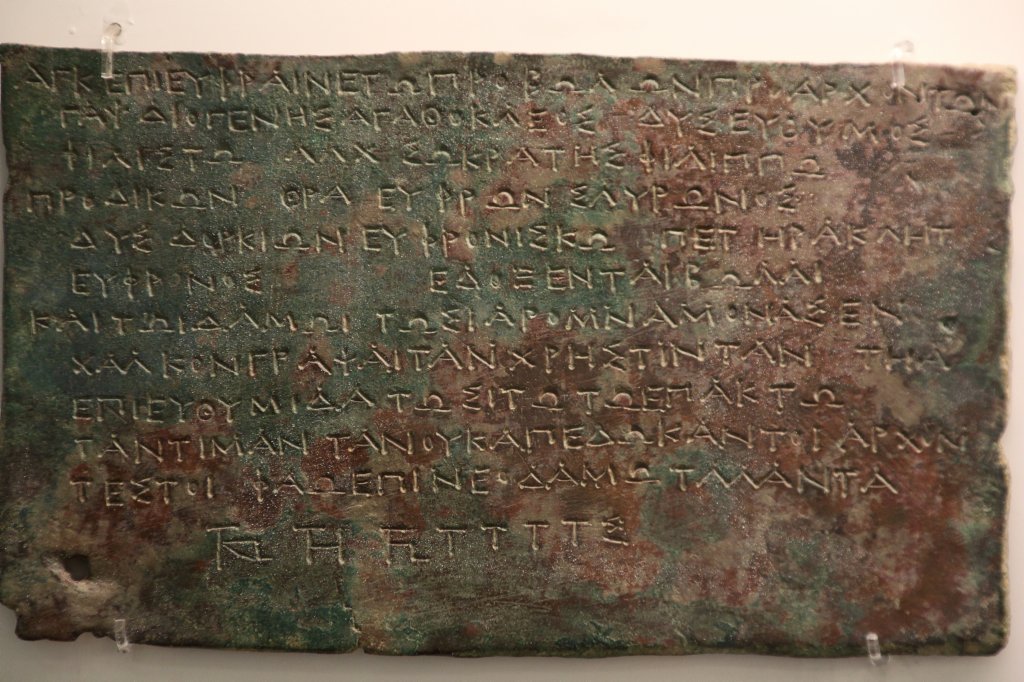 ΑΓΚ ΕΠΙ ΕΥΦΡΑΙΝΕΤΩ ΠΡΟΒΩΛΩΝ ΠΡΟΑΡΧΟΝΤΩΝ
ΓΑΨ ΔΙΟΓΕΝΗΣ ΑΓΑΘΟΚΛΕΟΣ ΔΥΣ ΕΥΘΥΜΟΣ
ΣΩΚΡΑΤΗΣ ΦΙΛΙΠΠΩ
ΠΡΟΔΙΚΩΝ ΘΡΑ ΕΥΦΡΩΝ
ΔΥΣ ΔΟΡΚΙΩΝ ΕΥΦΡΟΝΙΣΚΩ ΠΕΤ ΗΡΑΚΛΗΤ
ΕΥΦΡΟΝΟΣ ΕΔΟΞΕ ΝΤΑΙ ΒΩΛΑΙ
ΚΑΙ ΤΩΙ ΔΑΜΩΙ ΤΩΣ ΙΑΡΟΜΝΑΜΟΝΑΣ ΕΝ
ΧΑΛΚΟΝ ΓΡΑΨΑΙ ΤΑΝ ΧΡΗΣΤΙΝ ΤΑΝ
ΕΠΙ ΕΥΘΥΜΙΔΑ ΤΩ ΣΙΤΩ ΤΩ ΕΠΑΚΤΩ
ΤΑΝ ΤΙΜΑΝ ΤΑΝ ΟΥΚ ΑΠΕΔΩΚΑΝ ΤΟΙ ΑΡΧΟΝ
ΤΕΣ ΤΟΙ ΕΠΙ ΝΕΟΔΑΜΩ ΤΑΛΑΝΤΑ
ΤΤΤΤΤΣ